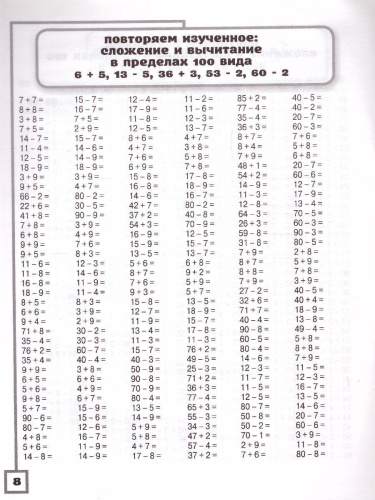 повторяем изученное:
сложение и вычитание
в пределах 100 вида
6 + 5, 13 - 5, 36 + 3, 53 - 2, 60 - 2
7+7= 15–7= 12–4= 11–2= 85+2= 40–5=
8+8= 14–7= 11–6= 11–6= 77–4= 40–2=
3+8= 7+5= 11–8= 12–3= 35–4= 20–7=
7+5= 2+9= 12–5= 13–7= 36+3= 60–3=
14–7= 15–7= 8+6= 4+7= 8+7= 8+7=
11–4= 14–6= 4+6= 3+8= 8+4= 5+8=
12–5= 14–9= 7+6= 5+8= 7+9= 6+8=
18–9= 18–9= 6+9= 7+8= 48+1= 20–7=
3+9= 3+9= 15–8= 17–8= 54+2= 60–6=
9+5= 4+7= 16–8= 18–9= 16–9= 17–9=
66–2= 80–2= 14–6= 14–9= 11–3= 12–7=
22+6= 30–5= 42+7= 80–2= 12–5= 13–4=
41+8= 90–9= 37+2= 40–8= 64–3= 70–5=
7+8= 3+9= 54+3= 70–9= 26+3= 60–3=
6+8= 4+9= 16–9= 12–5= 59–8= 90–3=
9+9= 7+6= 15–9= 15–7= 31–8= 80–5=
9+5= 8+3= 13–5= 13–7= 7+9= 2+8=
11–6= 12–3= 5+6= 6+8= 8+7= 5+9=
11–8= 14–6= 8+7= 9+2= 8+8= 7+8=
16–8= 15–7= 9+6= 5+9= 7+9= 3+9=
18–9= 11–4= 9+3= 5+7= 27–2= 40–5=
8+5= 8+3= 15–8= 13–5= 32+6= 40+4=
6+6= 3+9= 12–7= 18–9= 71+7= 18–6=
9+4= 2+9= 11–9= 11–9= 17–4= 13–8=
71+8= 30–2= 15–7= 40–8= 90–8= 49–4=
35–4= 30–3= 13–4= 90–8= 60–5= 5+8=
76+2= 60–7= 15–7= 76+2= 80–4= 8+8=
35+4= 40–4= 11–3= 49–5= 14–6= 7+3=
9+9= 3+8= 50–9= 25–3= 12–3= 11–5=
6+5= 6+6= 90–8= 71+2= 11–2= 11–5=
5+6= 4+9= 70–9= 36+3= 11–7= 16–7=
9+8= 6+7= 80–4= 77–4= 12–5= 13–5=
5+7= 15–9= 13–5= 65+3= 80–7= 14–6=
90–6= 15–6= 14–5= 55–3= 50–8= 20–2=
80–7= 12–6= 5+9= 34–3= 50–2= 60–6=
4+8= 16–7= 5+8= 47+2= 70–1= 3+9=
14–8= 14–9= 17–8= 37+2= 7+6= 80–8=
8